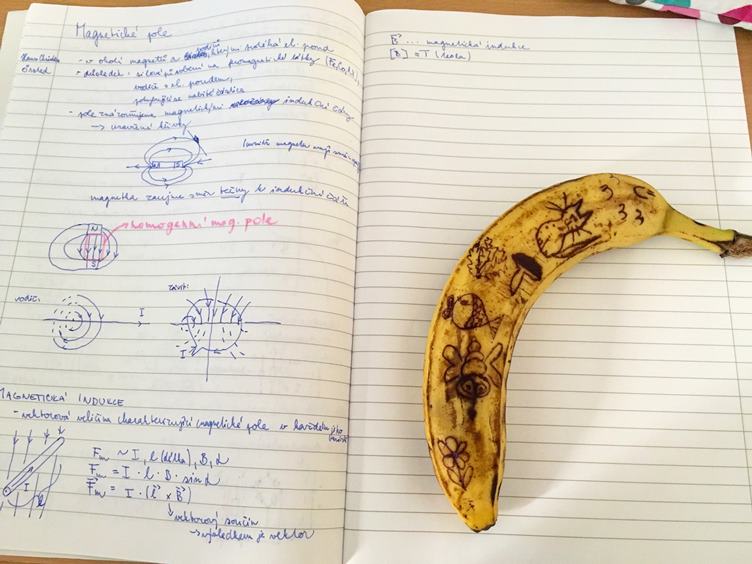 Magnetické pole
- v okolí magnetů a vodičů, kterými protéká el. proud
- důsledek: silové působení na feromagnetické látky (Fe, Co, Ni),
vodič s el. proudem,
pohybující se nabité částice
- pole znázorňujeme magnetickými indukčními čárami
→ uzavřené křivky
N S
magnetka zaujme směr tečny k indukční čáře
N
homogenní mag. pole
S
vodič:
I
závit:
I
MAGNETICKÁ INDUKCE
- vektorová veličina charakterizující magnetické pole v každém jeho
Fm ~ I, l (délka), B, α
Fm = I · l · B · sin α
F⃗m = I · (l⃗ × B⃗)
I
vektorový součin
→ výsledkem je vektor
B⃗ ... magnetická indukce
[B] = T (tesla)
3 3 3